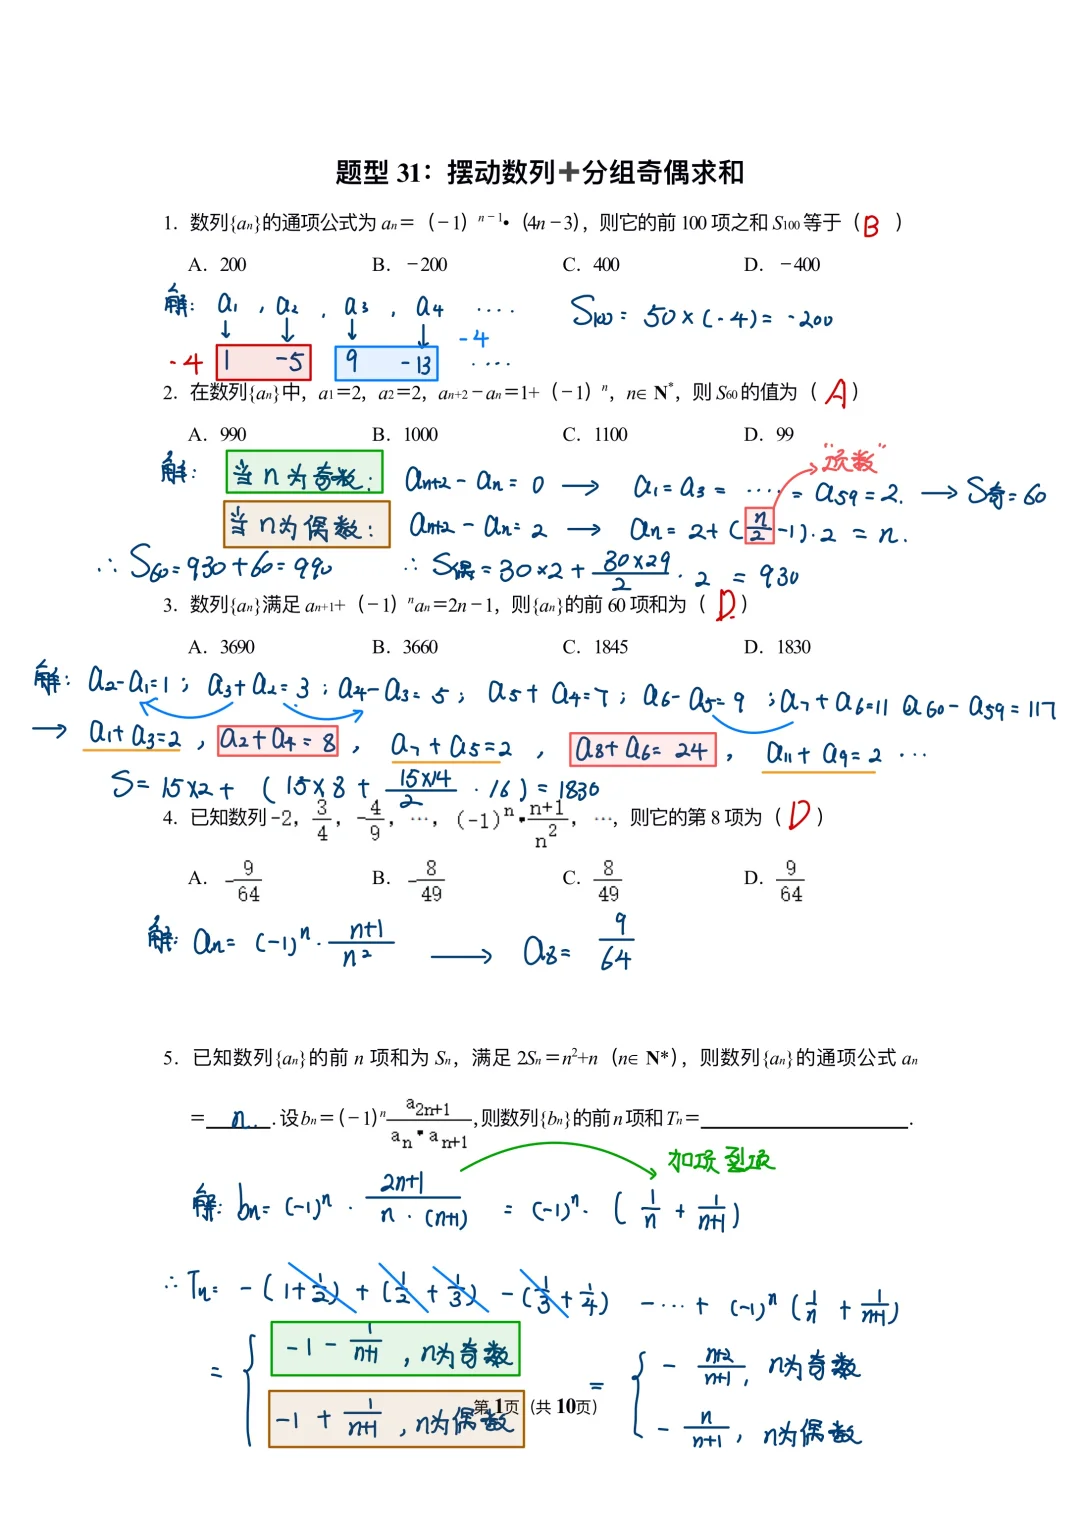 题型 31：摆动数列➕分组奇偶求和
1. 数列{aₙ}的通项公式为 aₙ＝（－1）ⁿ⁻¹•（4n－3），则它的前 100 项之和 S₁₀₀ 等于（ B ）
A. 200 B. －200 C. 400 D. －400
解: a₁ , a₂ , a₃ , a₄ ···· S₁₀₀ = 50×(-4) = -200
↓ ↓ ↓ ↓ -4
-4 1 -5 9 -13 ····
2. 在数列{aₙ}中，a₁＝2，a₂＝2，aₙ₊₂－aₙ＝1+（－1）ⁿ，n∈N*，则 S₆₀ 的值为（ A ）
A. 990 B. 1000 C. 1100 D. 99
"项数"
解: 当 n 为奇数: aₙ₊₂ - aₙ = 0 → a₁ = a₃ = ···· = a₅₉ = 2. → S奇 = 60
当 n 为偶数: aₙ₊₂ - aₙ = 2 → aₙ = 2+(n/2 -1)·2 = n.
∴ S₆₀ = 930+60 = 990 ∴ S偶 = 30×2 + 30×29/2 · 2 = 930
3. 数列{aₙ}满足 aₙ₊₁+（－1）ⁿaₙ＝2n－1，则{aₙ}的前 60 项和为（ D ）
A. 3690 B. 3660 C. 1845 D. 1830
解: a₂-a₁=1 ; a₃+a₂=3 ; a₄-a₃=5 ; a₅+a₄=7 ; a₆-a₅=9 ; a₇+a₆=11 a₆₀-a₅₉=117
→ a₁+a₃=2 , a₂+a₄=8 , a₇+a₅=2 , a₈+a₆=24 , a₁₁+a₉=2 ···
S= 15×2 + ( 15×8 + 15×14/2 · 16 ) = 1830
4. 已知数列 -2, 3/4, -4/9, ···, (-1)ⁿ•n+1/n², ···, 则它的第 8 项为（ D ）
A. -9/64 B. -8/49 C. 8/49 D. 9/64
解: aₙ = (-1)ⁿ · n+1/n² → a₈ = 9/64
5. 已知数列{aₙ}的前 n 项和为 Sₙ，满足 2Sₙ＝n²+n（n∈N*），则数列{aₙ}的通项公式 aₙ
＝ n . 设 bₙ＝(－1)ⁿ a₂ₙ₊₁/aₙ•aₙ₊₁, 则数列{bₙ}的前n项和Tₙ＝ .
加项到项
解: bₙ = (-1)ⁿ · 2n+1/n·(n+1) = (-1)ⁿ · ( 1/n + 1/n+1 )
∴ Tₙ = -(1+1/2) + (1/2+1/3) - (1/3+1/4) -···+ (-1)ⁿ (1/n + 1/n+1)
= { -1 - 1/n+1 , n为奇数 = { - n+2/n+1 , n为奇数
第 1页（共 10页）
-1 + 1/n+1 , n为偶数 - n/n+1 , n为偶数